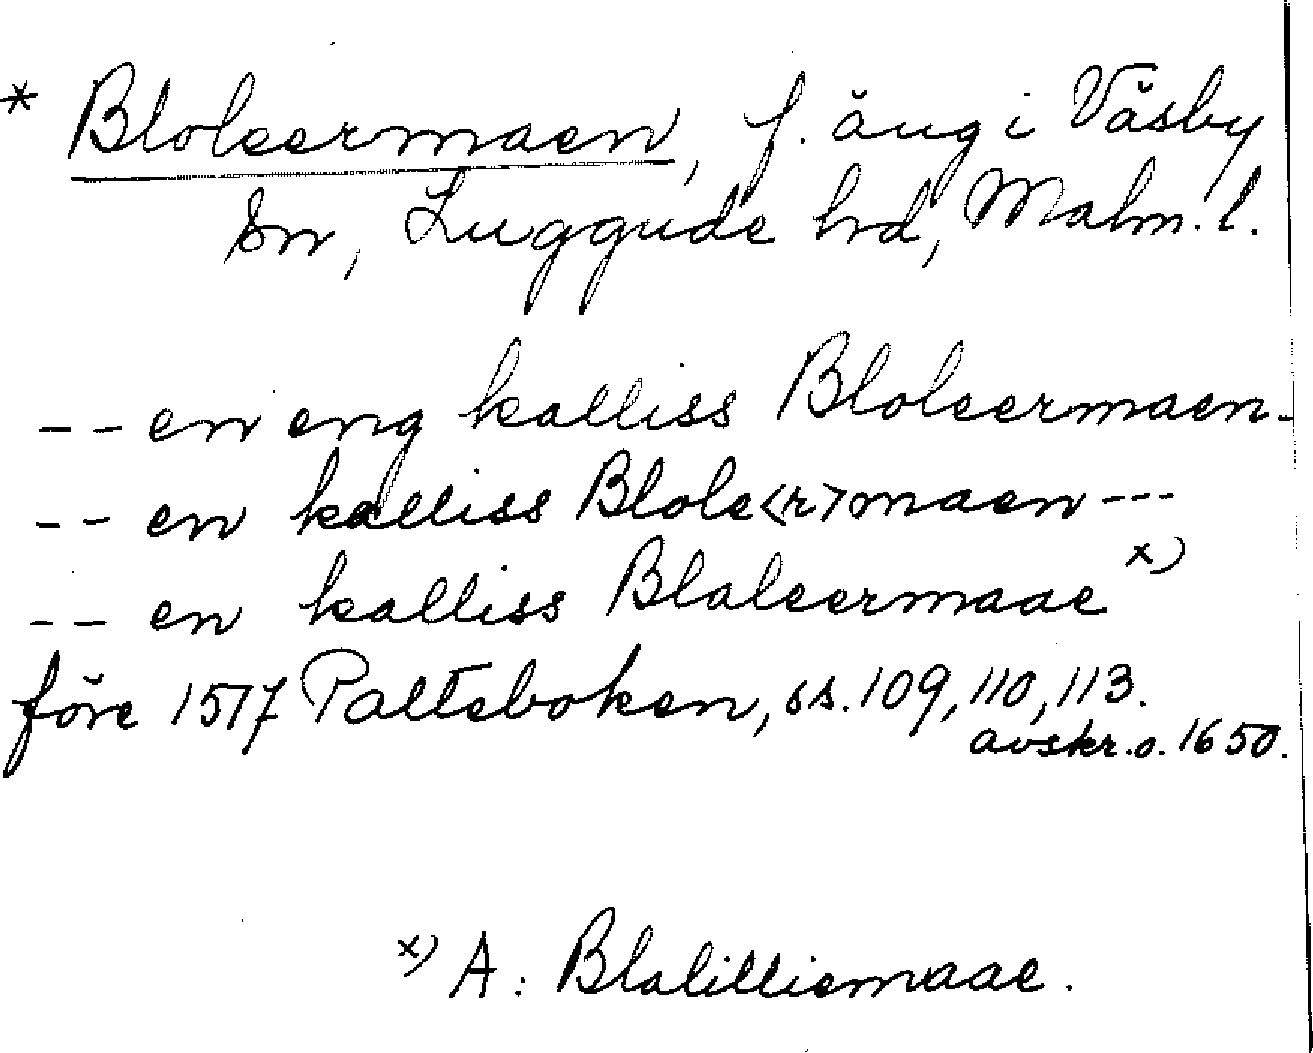 * Bloleermaen, f. äng i Väsby
sn, Luggude hd, Malm. l.
-- en eng kalliss Bloleermaen-
-- en kalliss Blole<r>maen ---
-- en kalliss Blaleermaae x)
före 1517 Palteboken, ss. 109, 110, 113.
avskr. o. 1650.
x) A: Blalilliemaae.